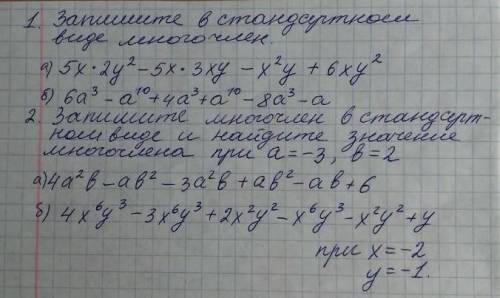 1. Запишите в стандартном
виде многочлен.
а) 5x·2y²-5x·3xy-x²y+6xy²
б) 6a³-a¹⁰+4a³+a¹⁰-8a³-a
2. Запишите многочлен в стандарт-
ном виде и найдите значение
многочлена при a=-3, b=2
а) 4a²b-ab²-3a²b+ab²-ab+6
б) 4x⁶y³-3x⁶y³+2x²y²-x⁶y³-x²y²+y
при x=-2
y=-1.